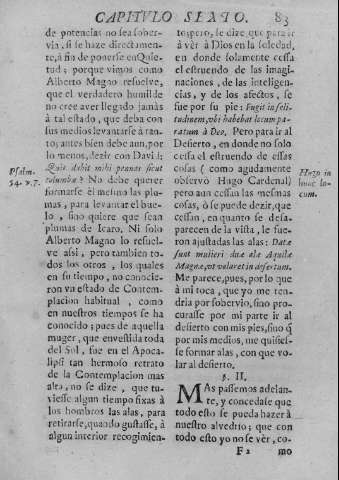 CAPITVLO SEXTO. 83
de potencias no sea sober-
via, si se haze directamen-
te, à fin de ponerse en Quie-
tud; porque vimos como
Alberto Magno resuelve,
que el verdadero humilde
no cree aver llegado jamàs
à tal estado, que deba con
sus medios levantarse à tan-
to; antes bien debe aun, por
lo menos, dezir con David:
Quis dabit mihi pennas sicut
columbæ? No debe querer
formarse èl mesmo las plu-
mas, para levantar el bue-
lo, sino quiere que sean
plumas de Icaro. Ni solo
Alberto Magno lo resuel-
ve assi, pero tambien to-
dos los otros, los quales
en su tiempo, no conocie-
ron va estado de Contem-
placion habitual, como
en nuestros tiempos se ha
conocido; pues de aquella
muger, que envestida toda
del Sol, fue en el Apoca-
lipsi tan hermoso retrato
de la Contemplacion mas
alta, no se dize, que tu-
viesse algun tiempo fixas à
los hombros las alas, para
retirarse, quando gustasse, à
algun interior recogimien-
Psalm.
54. v.7.
to; pero, se dize, que para ir
à vèr à Dios en la soledad,
en donde solamente cessa
el estruendo de las imagi-
naciones, de las inteligen-
cias, y de los afectos, se
fue por su pie: Fugit in soli-
tudinem, vbi habebat locum pa-
ratum à Deo. Pero para ir al
Desierto, en donde no solo
cessa el estruendo de essas
cosas (como agudamente
observò Hugo Cardenal)
pero aun cessan las mesmas
cosas, ò se puede dezir, que
cessan, en quanto se desa-
parecen de la vista, le fue-
ron ajustadas las alas: Datæ
sunt mulieri duæ alæ Aquilæ
Magnæ, vt volaret in desertum.
Me parece, pues, por lo que
à mi toca, que yo me ten-
dria por sobervio, sino pro-
curasse por mi parte ir al
desierto con mis pies, sino q̃
por mis medios, me quisies-
se formar alas, con que vo-
lar al desierto.
Hugo in
hunc lo-
cum.
§. II.
MAs passemos adelan-
te, y concedase que
todo esto se pueda hazer à
nuestro alvedrio; que con
todo esto yo no se vèr, co-
F 2 mo